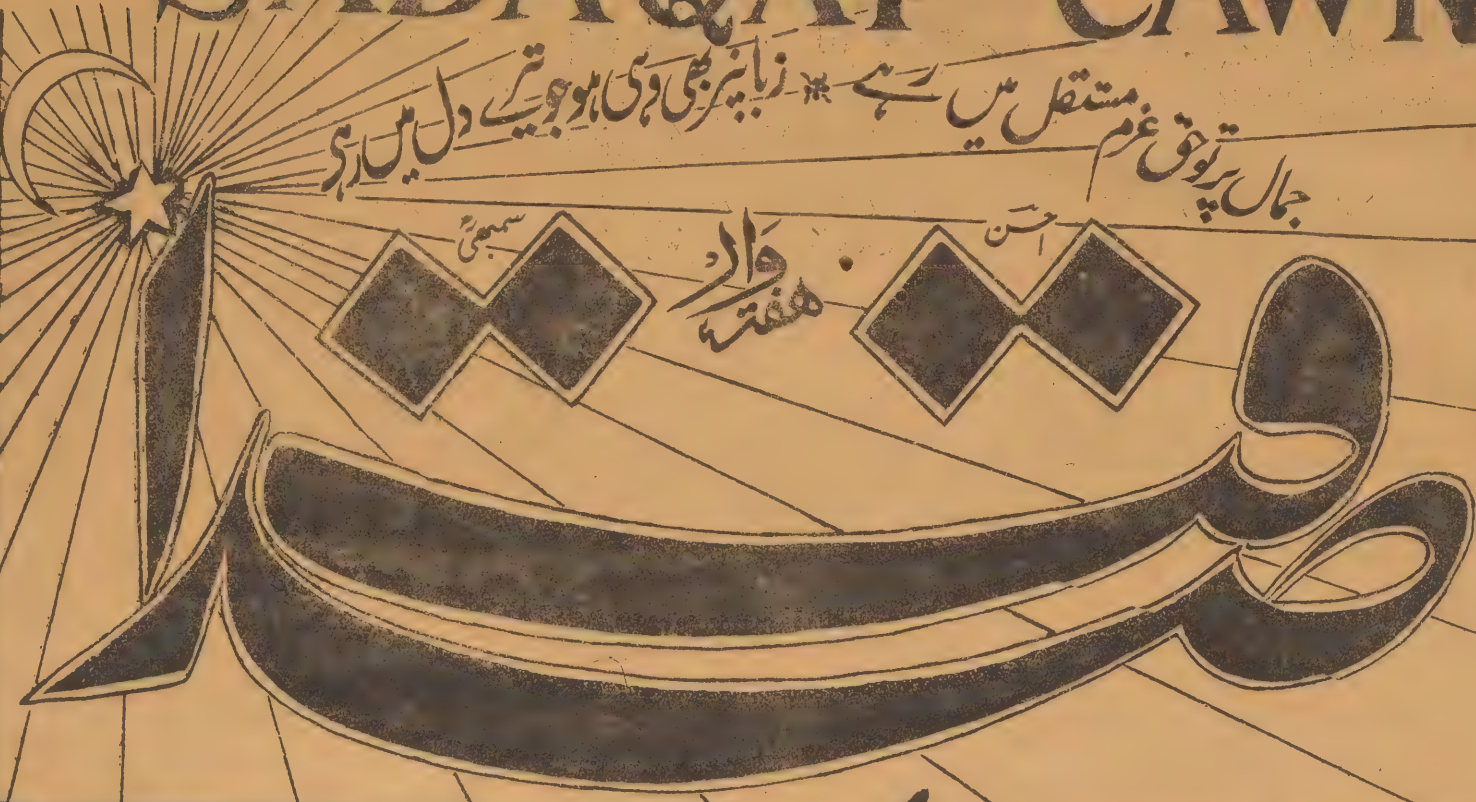 SADAQAT CAWN
جمال پرتو حق عزم مستقل میں رہے ٭ زباں پر بھی وہی ہو جو تیرے دل میں رہی
احسن
ہفتہ وار
صداقت